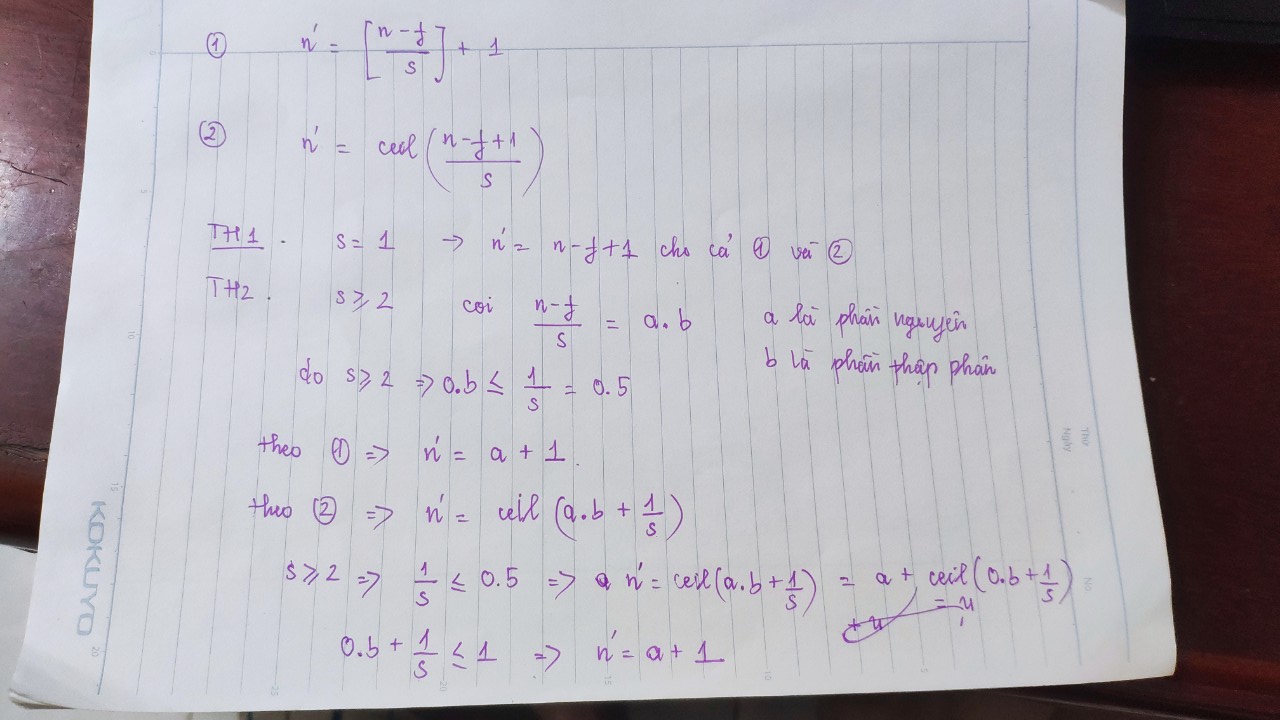 ① n' = [n-f/s] + 1
② n' = ceil(n-f+1/s)
TH1. s = 1 → n' = n-f+1 cho cả ① và ②
TH2. s ⩾ 2 coi n-f/s = a.b a là phần nguyên
b là phần thập phân
do s ⩾ 2 => 0.b ≤ 1/s = 0.5
theo ① => n' = a + 1.
theo ② => n' = ceil(a.b + 1/s)
s ⩾ 2 => 1/s ≤ 0.5 => n' = ceil(a.b + 1/s) = a + ceil(0.b + 1/s)
0.b + 1/s ≤ 1 => n' = a + 1
KOKUYO
THỨ
Ngày
No.
5
10
15
20
25
5
10
15
20